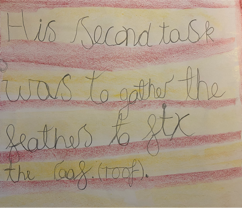 His second task
was to gather the
feathes to ftx
the roof.(roof).